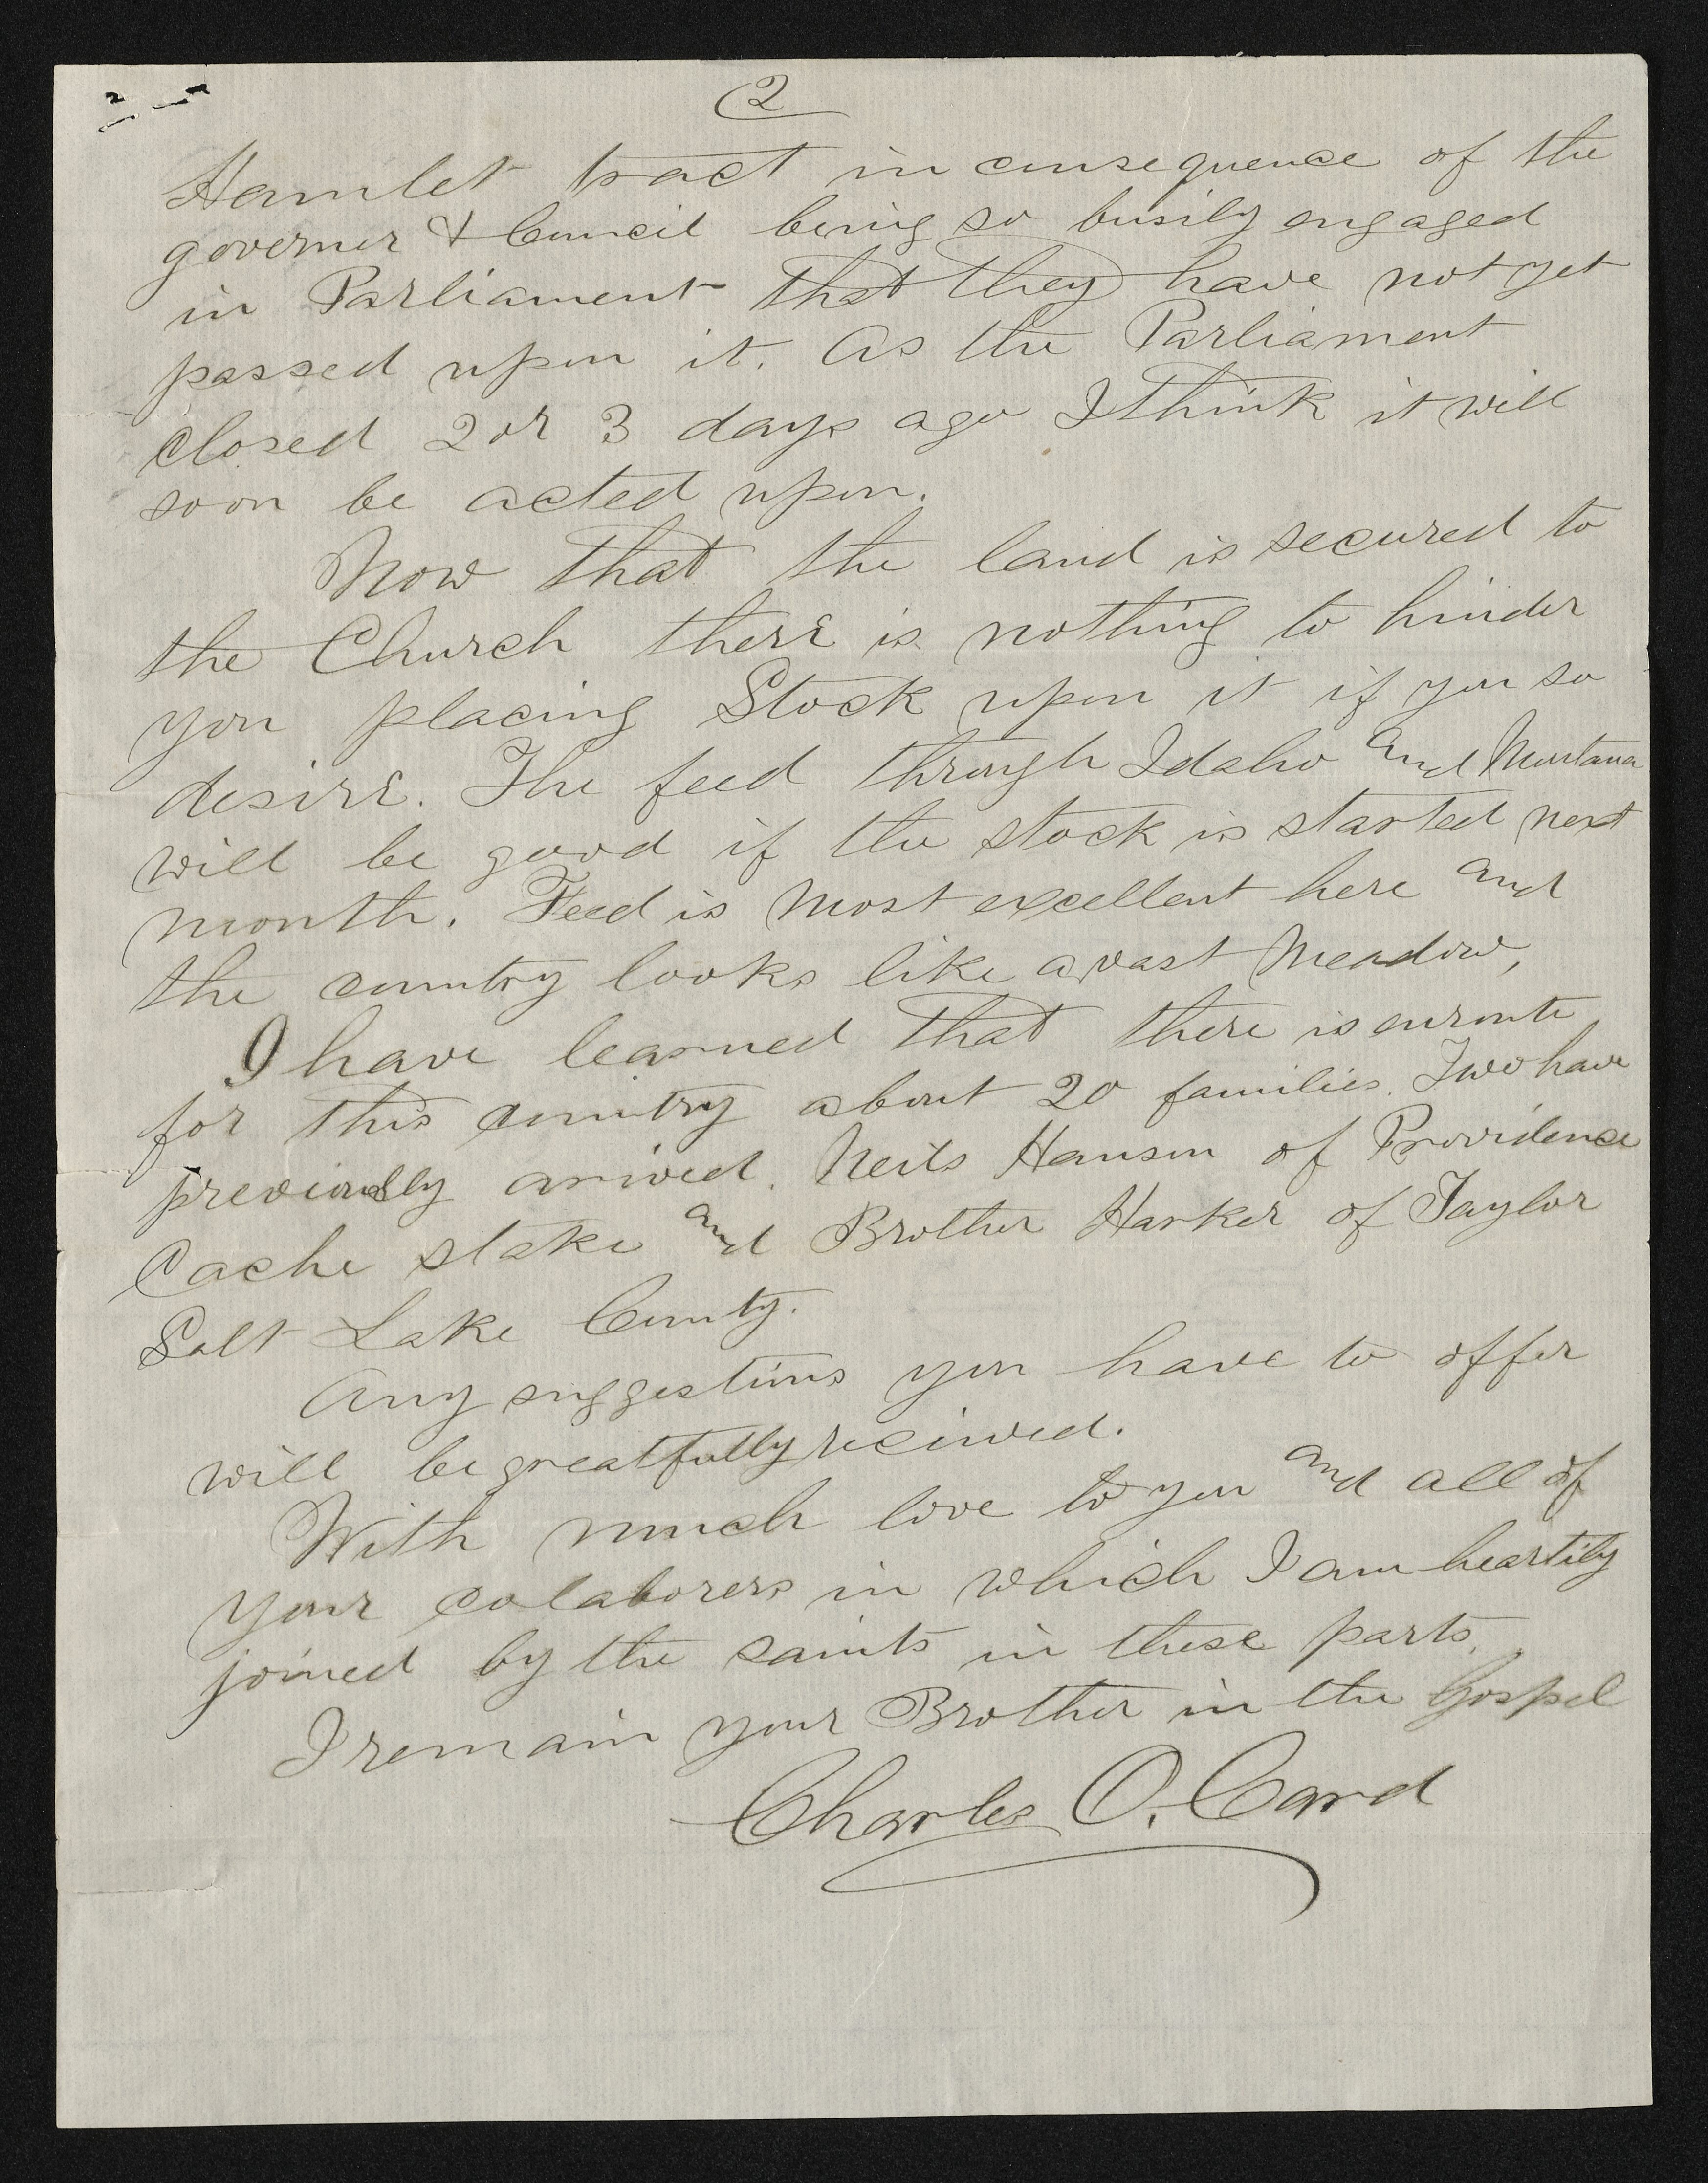 2
Hamlet tract in consequence of the
governer & Council being so busily engaged
in Parliament that they have not yet
passed upon it. As the Parliament
closed 2 or 3 days ago I think it will
soon be acted upon.
Now that the land is secured to
the Church there is nothing to hinder
you placing Stock upon it if you so
desire. The feed through Idaho and Montana
will be good if the stock is started next
month. Feed is most excellent here and
the country looks like a vast Meadow,
I have learned that there is enroute
for this country about 20 families. Two have
previously arrived. Neils Hansen of Providence
Cache stake and Brother Harker of Taylor
Salt Lake County.
Any suggestions you have to offer
will be greatfully received.
With much love to you and all of
your colaborers in which I am heartily
joined by the saints in these parts.
I remain your Brother in the Gospel
Charles O. Card